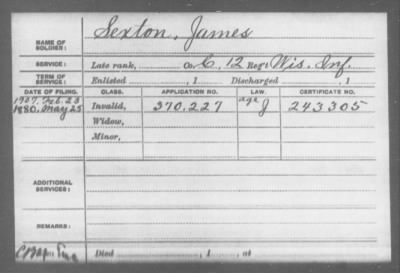 Sexton, James
NAME OF SOLDIER:
SERVICE: Late rank, Co. C, 12 Reg't Wis. Inf.
TERM OF SERVICE: Enlisted , 1 Discharged , 1
DATE OF FILING. CLASS. APPLICATION NO. LAW. CERTIFICATE NO.
1927. Feb. 23
1880. May 25 Invalid, 370.227 age J 243305
Widow,
Minor,
ADDITIONAL SERVICES:
REMARKS:
Died , 1 , at